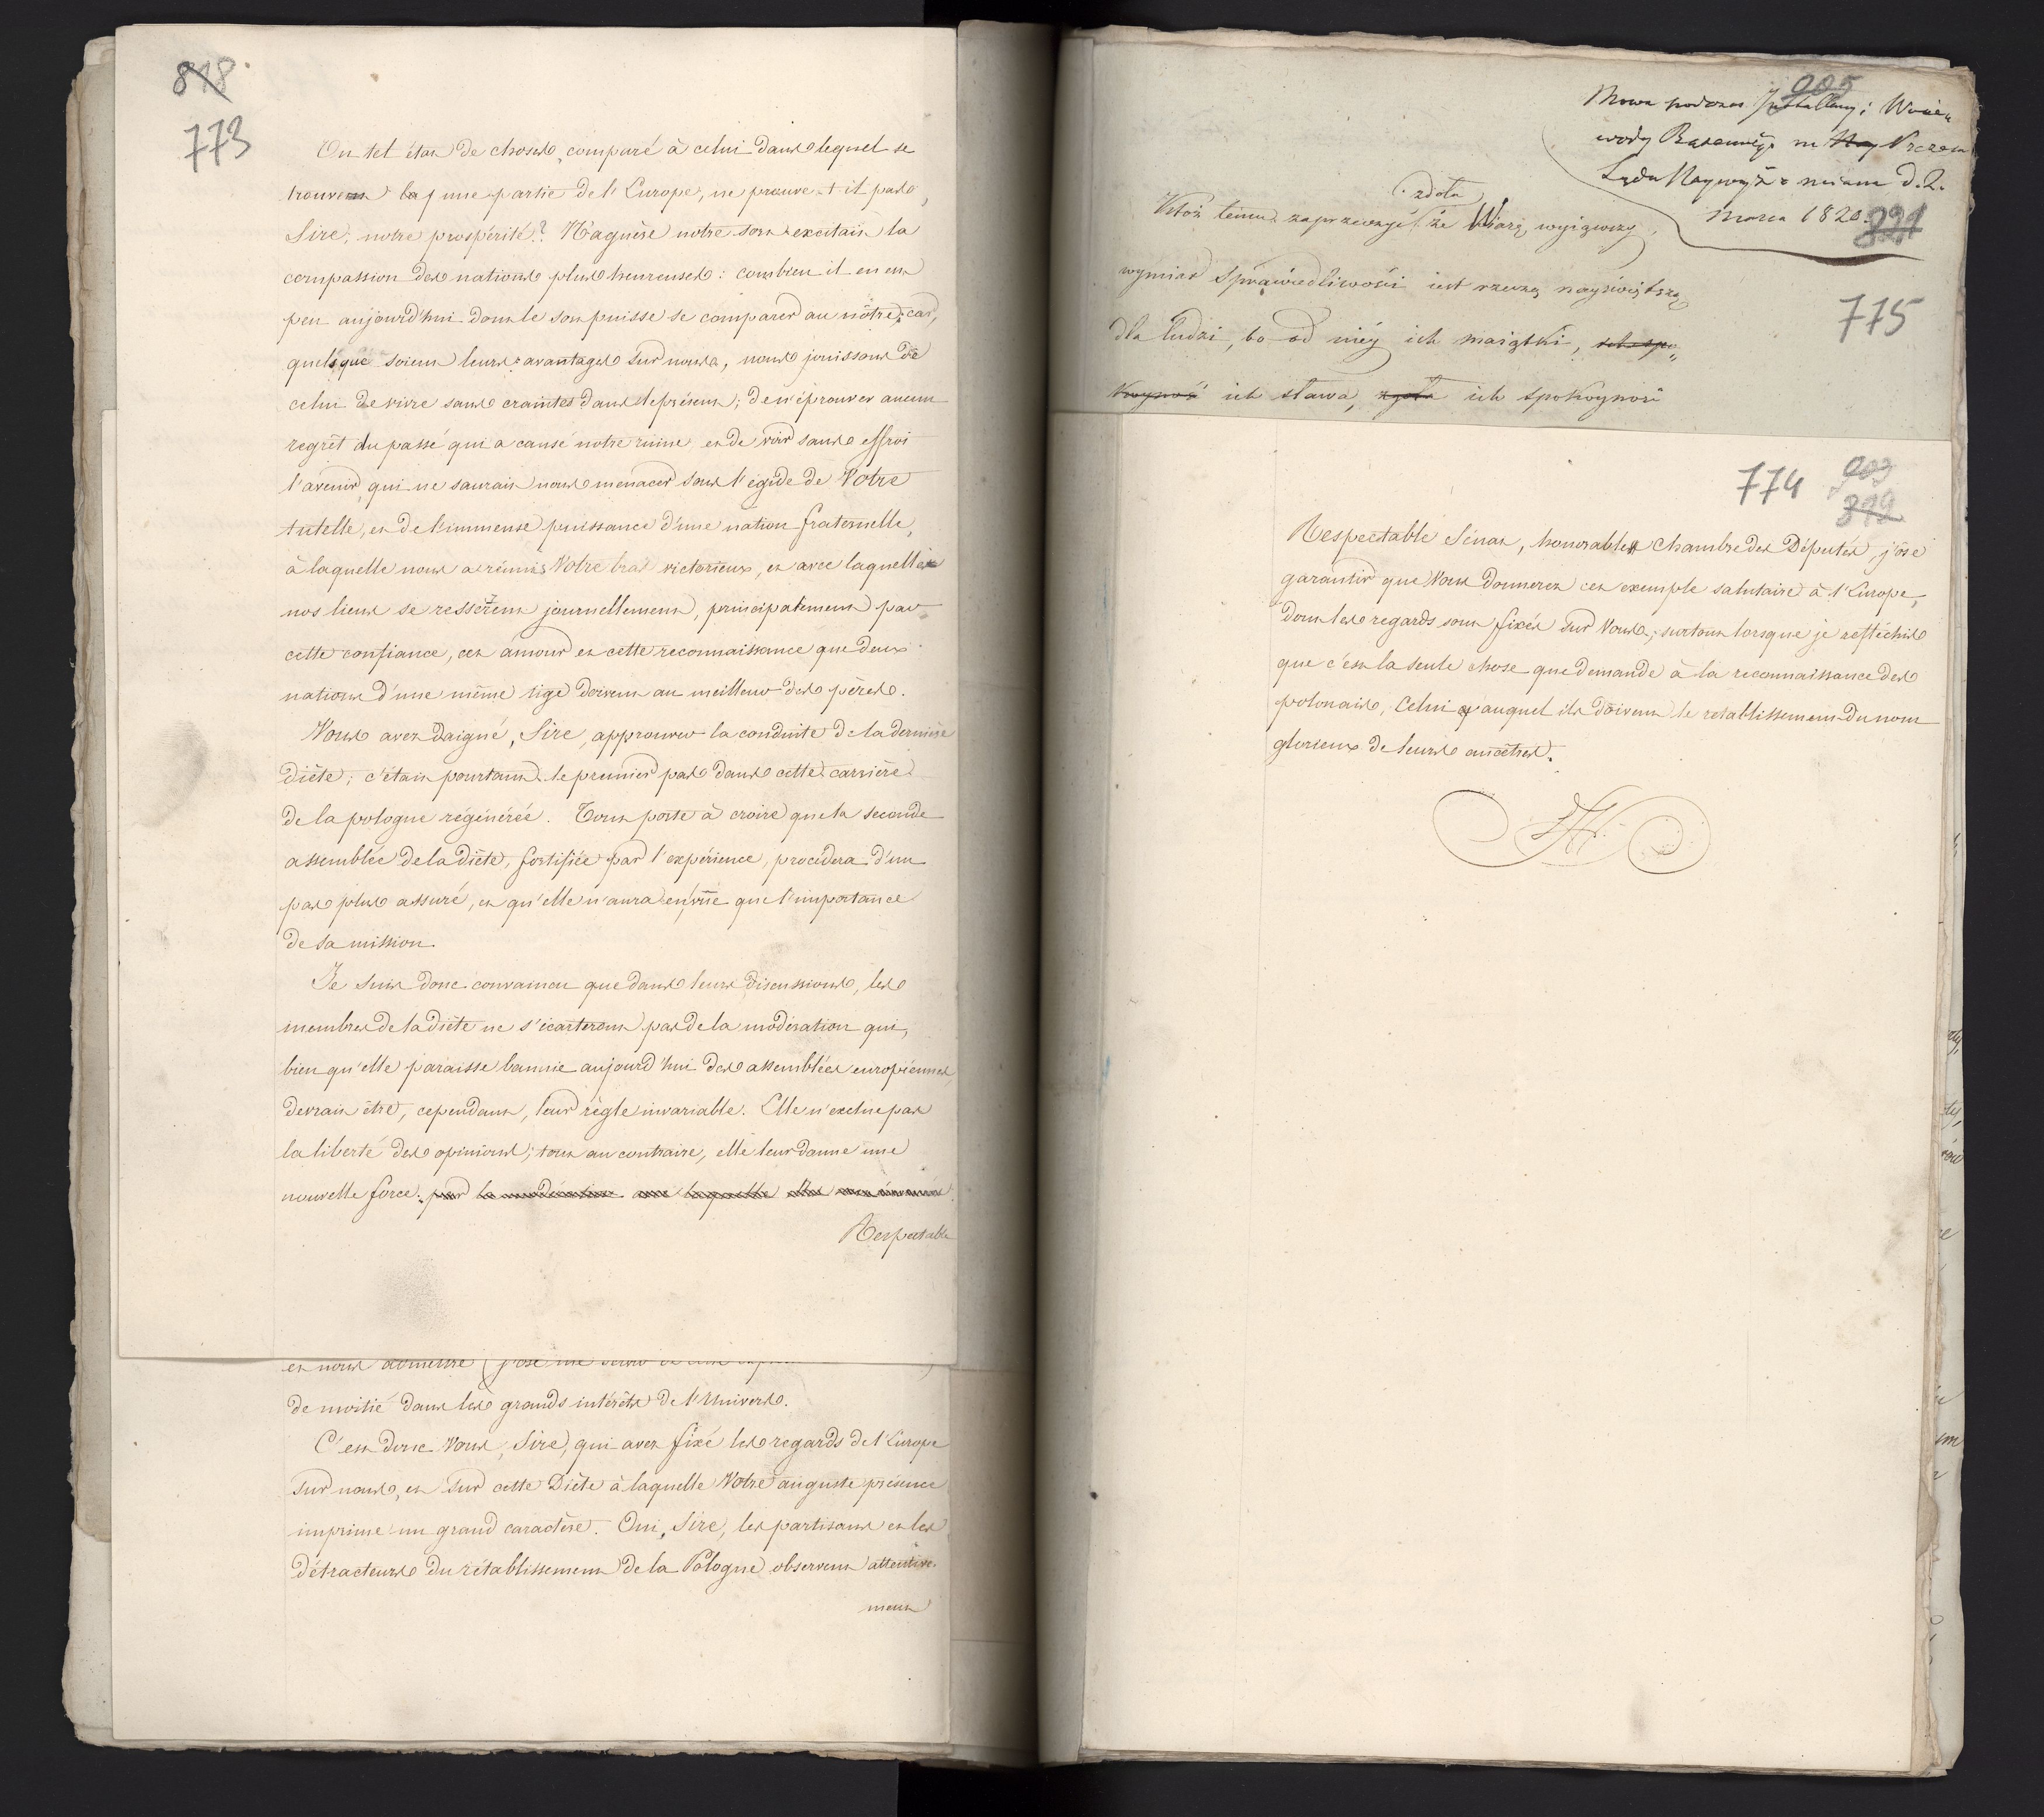 818
773
Un tel état de choses, comparé à celui dans lequel se
trouvent une partie de l'Europe, ne prouve-t-il pas,
Sire, notre prospérité? N'aguère notre sort excitait la
compassion des nations plus heureuses: combien il en est
peu aujourd'hui dont le sort puisse se comparer au nôtre, car,
quelsque soient leurs avantages sur nous, nous jouissons de
celui de vivre sans craintes dans le présent; de n'éprouver aucun
regrêt du passé qui a causé notre ruine et de voir sans effroi
l'avenir qui ne saurait nous menacer sous l'égide de Votre
tutelle, et de l'immense puissance d'une nation fraternelle,
à laquelle nous a réunis Votre bras victorieux, et avec laquelle
nos liens se resserrent journellement, principalement par
cette confiance, cet amour et cette reconnaissance que deux
nations d'une même tige doivent au meilleur des pères.
Vous avez daigné, Sire, approuver la conduite de la dernière
diète; c'était pourtant le premier pas dans cette carrière
de la pologne régénérée. Tout porte à croire que la seconde
assemblée de la diète, fortifiée par l'expérience, procédera d'un
pas plus assuré, et qu'elle n'aura en vue que l'importance
de sa mission.
Je suis donc convaincu que dans leurs discussions, les
membres de la diète ne s'écarteront pas de la modération qui,
bien qu'elle paraisse bannie aujourd'hui des assemblées européennes,
devrait être, cependant, leur règle invariable. Elle n'exclue pas
la liberté des opinions; tout au contraire, elle leur donne une
nouvelle force. par la modération avec laquelle elles
Respectable
et nous admettre (j'ose me servir de cette
de moitié dans les grands intérêts de l'Univers.
C'est donc Vous, Sire, qui avez fixé les regards de l'Europe
sur nous, et sur cette Diète à laquelle Votre auguste présence
imprime un grand caractère. Oui, Sire, les partisans et les
détracteurs du rétablissement de la Pologne observent attentive-
ment
905
Mowa podczas Installacyi Woie
wody na Prezesa
Sądu Naywyż miane d. 2.
Marca 1820.
821
775
zdoła
Któż temu zaprzeczyć że Wiarę wyiąwszy,
wymiar Sprawiedliwości iest rzeczą nayświętszą
dla ludzi, bo od niéy ich maiątki,
ich sława, zgoła ich spokoyność
774
903
Respectable Sénat, honorable Chambre des Députés, j'ose
garantir que Vous donnerez cet exemple salutaire à l'Europe,
dont les regards sont fixés sur Vous; surtout lorsque je refléchis
que c'est la seule chose que demande à la reconnaissance des
polonais, Celui auquel ils doivent le rétablissement du nom
glorieux de leurs ancêtres.